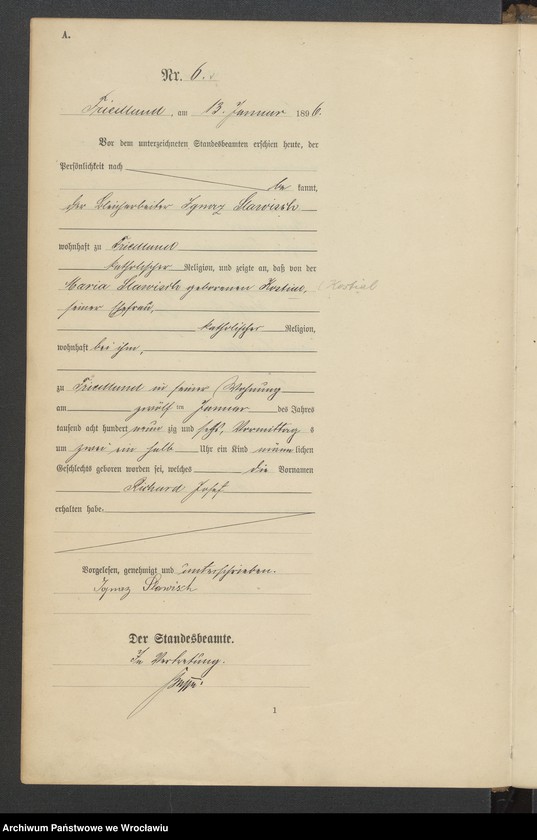 A.
Nr. 6.
Friedland, am 13. Januar 1896.
Vor dem unterzeichneten Standesbeamten erschien heute, der
Persönlichkeit nach
be kannt,
der Bleicharbeiter Ignaz Slawisch
wohnhaft zu Friedland
katholischer Religion, und zeigte an, daß von der
Maria Slawisch geborenen
seiner Ehefrau,
katholischer Religion,
wohnhaft bei ihm,
zu Friedland in seiner Wohnung
am zwölf ten Januar des Jahres
tausend acht hundert neun zig und sechs, Vormittag s
um zwei ein halb Uhr ein Kind männlichen
Geschlechts geboren worden sei, welches die Vornamen
Richard Josef
erhalten habe.
Vorgelesen, genehmigt und unterschrieben.
Ignaz Slawisch
Der Standesbeamte.
In Vertretung.
1
Archiwum Państwowe we Wrocławiu